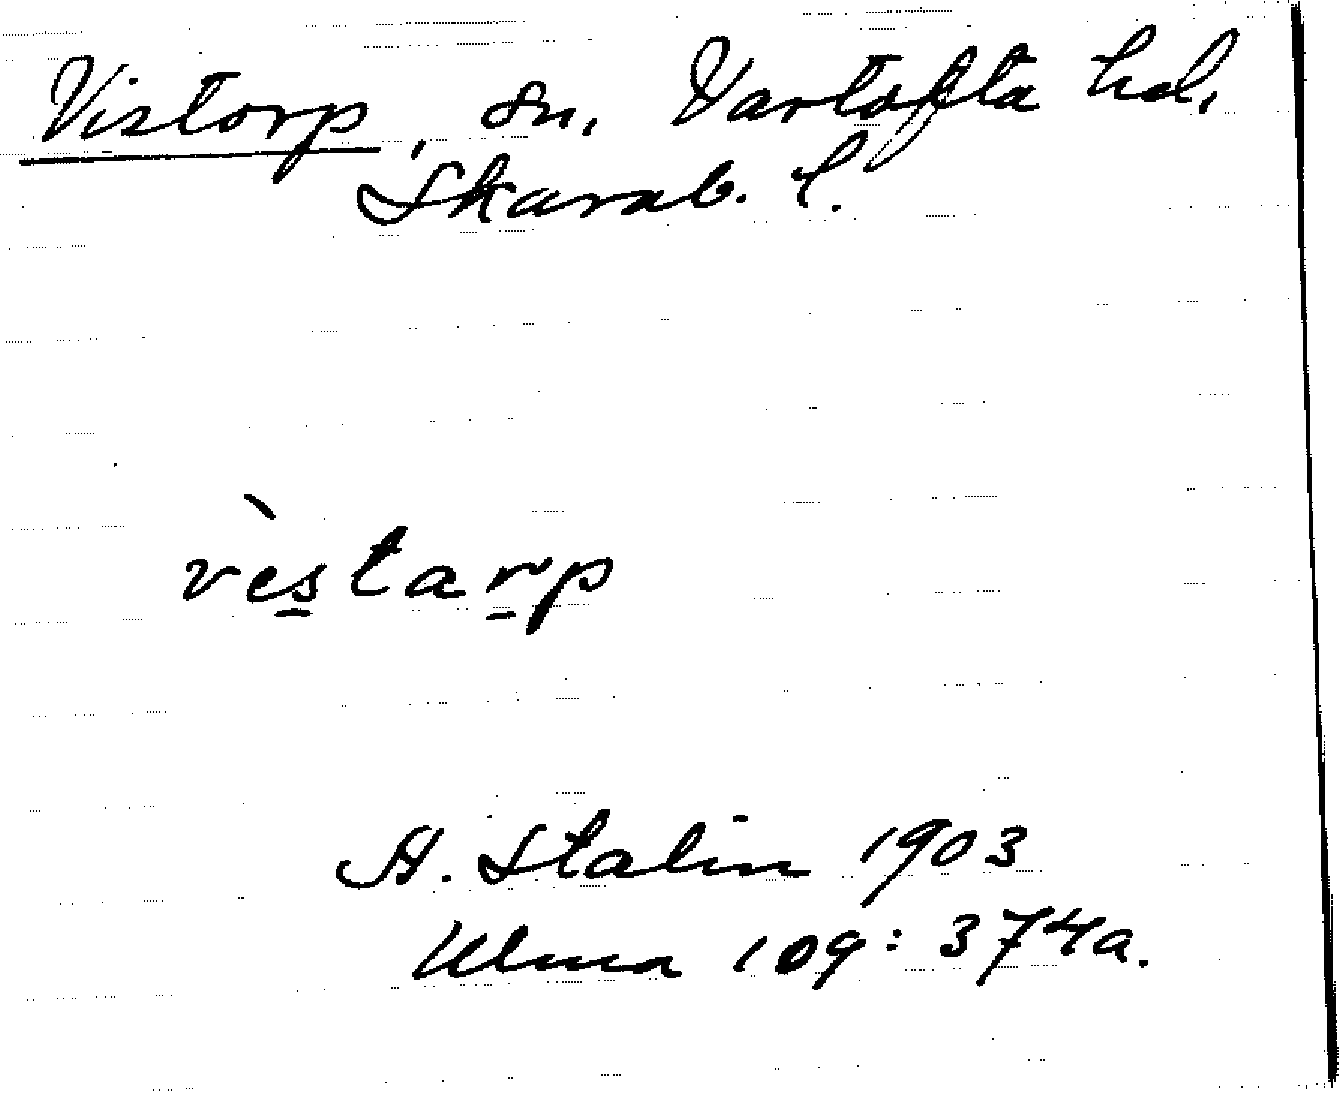 Vistorp, sn, Vartofta hd,
Skarab. l.
vès̲tar̲p
A. Stalin 1903
Ulma 109:374a.